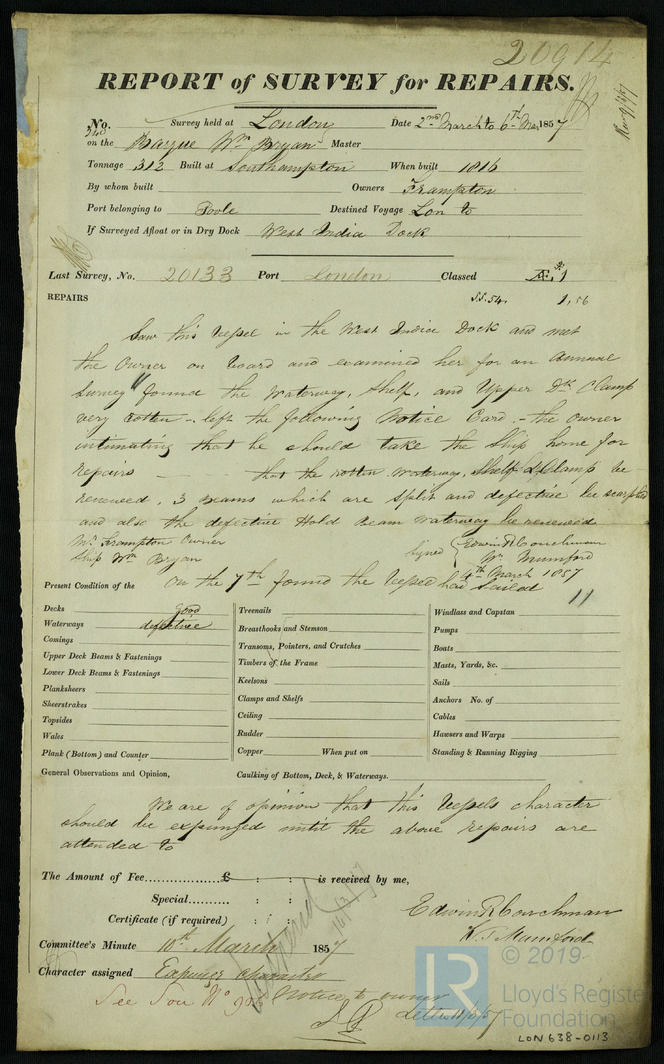 20914
REPORT of SURVEY for REPAIRS.
No. 340 Survey held at London Date 2nd March to 6th Mar 1857
on the Barque Wm Bryan Master
Tonnage 312 Built at Southampton When built 1816
By whom built Owners Frampton
Port belonging to Poole Destined Voyage Lon to
If Surveyed Afloat or in Dry Dock West India Dock
Last Survey, No. 20133 Port London Classed Æ 1
REPAIRS SS. 54. 1, 56
Saw this Vessel in the West India Dock and met
the Owner on board and examined her for an Annual
Survey found the Waterway, Shelf, and Upper Dk Clamp
very rotten - left the following Notice Card. - the owner
intimating that he should take the Ship home for
repairs - that the rotten Waterway, Shelf & Clamp be
renewed, 3 beams which are split and defective be scarphed
and also the defective Hold Beam Waterway be renewed
Mr. Frampton Owner Signed Edwin R Couchman
Ship Wm Bryan Wm Mumford
4th March 1857
On the 7th found the Vessel had Sailed
Present Condition of the
Decks good
Waterways defective
Comings
Upper Deck Beams & Fastenings
Lower Deck Beams & Fastenings
Planksheers
Sheerstrakes
Topsides
Wales
Plank (Bottom) and Counter
Treenails
Breasthooks and Stemson
Transoms, Pointers, and Crutches
Timbers of the Frame
Keelsons
Clamps and Shelfs
Ceiling
Rudder
Copper When put on
Windlass and Capstan
Pumps
Boats
Masts, Yards, &c.
Sails
Anchors No. of
Cables
Hawsers and Warps
Standing & Running Rigging
General Observations and Opinion, Caulking of Bottom, Deck, & Waterways.
We are of opinion that this Vessels character
should be expunged until the above repairs are
attended to
The Amount of Fee................£ : : is received by me,
Special........... : :
Certificate (if required) : : Edwin R Couchman
W. T. Mumford
Committee's Minute 10th March 1857
Character assigned Expunge Character
See Sou No 908 Notice to owner
Letter 11/3/57
LR
© 2019
Lloyd's Registe
Foundation
LON 638-0113